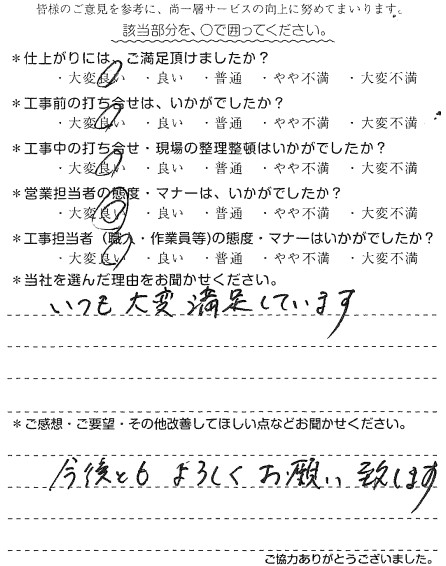 皆様のご意見を参考に、尚一層サービスの向上に努めてまいります。
該当部分を、〇で囲ってください。
*仕上がりには、ご満足頂けましたか?
・大変良い ・良い ・普通 ・やや不満 ・大変不満
*工事前の打ち合せは、いかがでしたか?
・大変良い ・良い ・普通 ・やや不満 ・大変不満
*工事中の打ち合せ・現場の整理整頓はいかがでしたか?
・大変良い ・良い ・普通 ・やや不満 ・大変不満
*営業担当者の態度・マナーは、いかがでしたか?
・大変良い ・良い ・普通 ・やや不満 ・大変不満
*工事担当者(職人・作業員等)の態度・マナーはいかがでしたか?
・大変良い ・良い ・普通 ・やや不満 ・大変不満
*当社を選んだ理由をお聞かせください。
いつも大変満足しています
*ご感想・ご要望・その他改善してほしい点などお聞かせください。
今後とも よろしく お願い 致します
ご協力ありがとうございました。